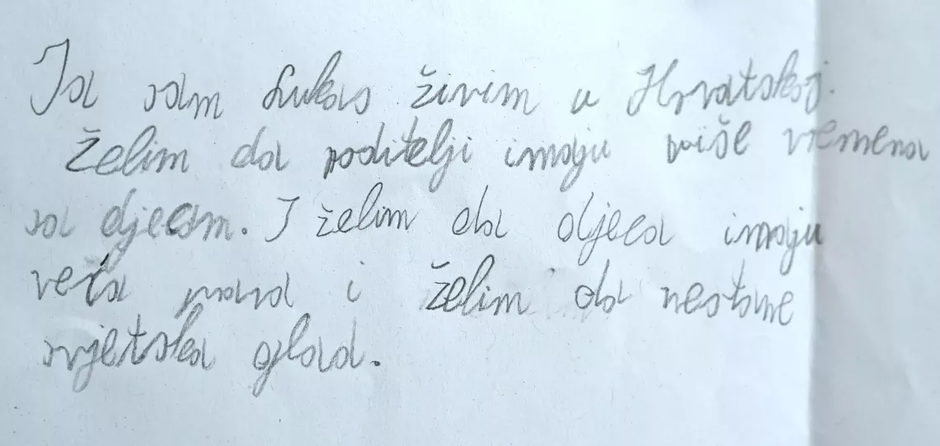 Ja sam Lukas živim u Hrvatskoj.
Želim da roditelji imaju više vremena
sa djecom. I želim da djeca imaju
veća prava i želim da nestane
svjetska glad.